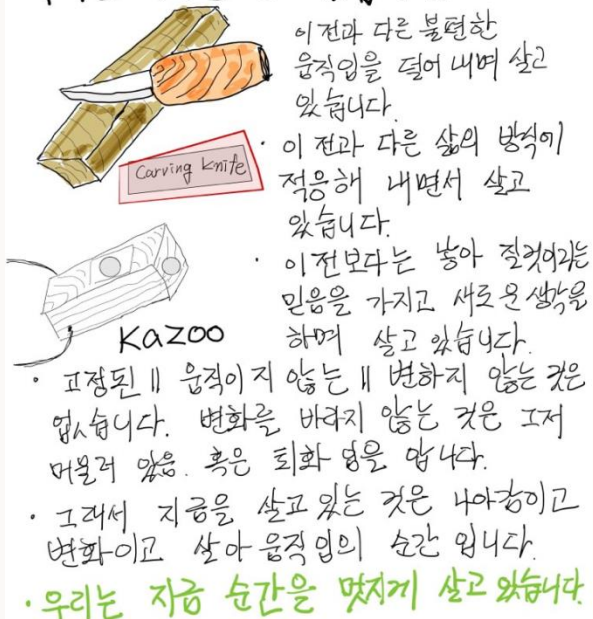 이 전과 다른 불편한
움직임을 덜어 내며 살고
있습니다.
Carving knife
· 이 전과 다른 삶의 방식에
적응해 내면서 살고
있습니다.
· 이 전보다는 낳아 질 것이라는
믿음을 가지고 새로운 생각을
하며 살고 있습니다.
Kazoo
· 고정된 || 움직이지 않는 || 변하지 않는 것은
없습니다. 변화를 바라지 않는 것은 그저
머물러 있음. 혹은 퇴화 임을 압니다.
· 그래서 지금을 살고 있는 것은 나아감이고
변화이고 살아 움직임의 순간 입니다.
· 우리는 지금 순간을 멋지게 살고 있습니다.